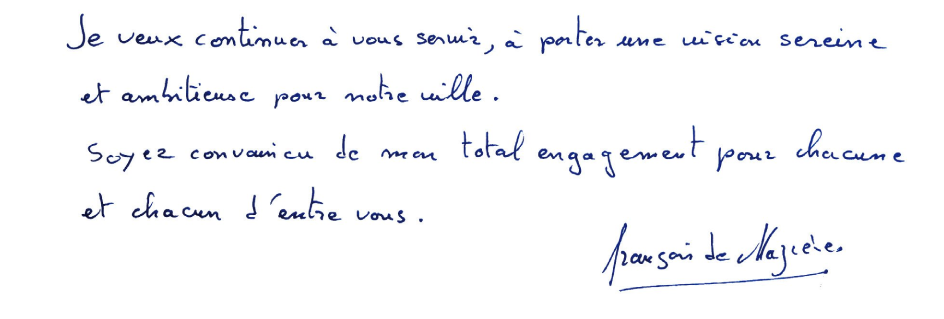 Je veux continuer à vous servir, à porter une vision sereine
et ambitieuse pour notre ville.
Soyez convaincu de mon total engagement pour chacune
et chacun d'entre vous.
François de Mazières